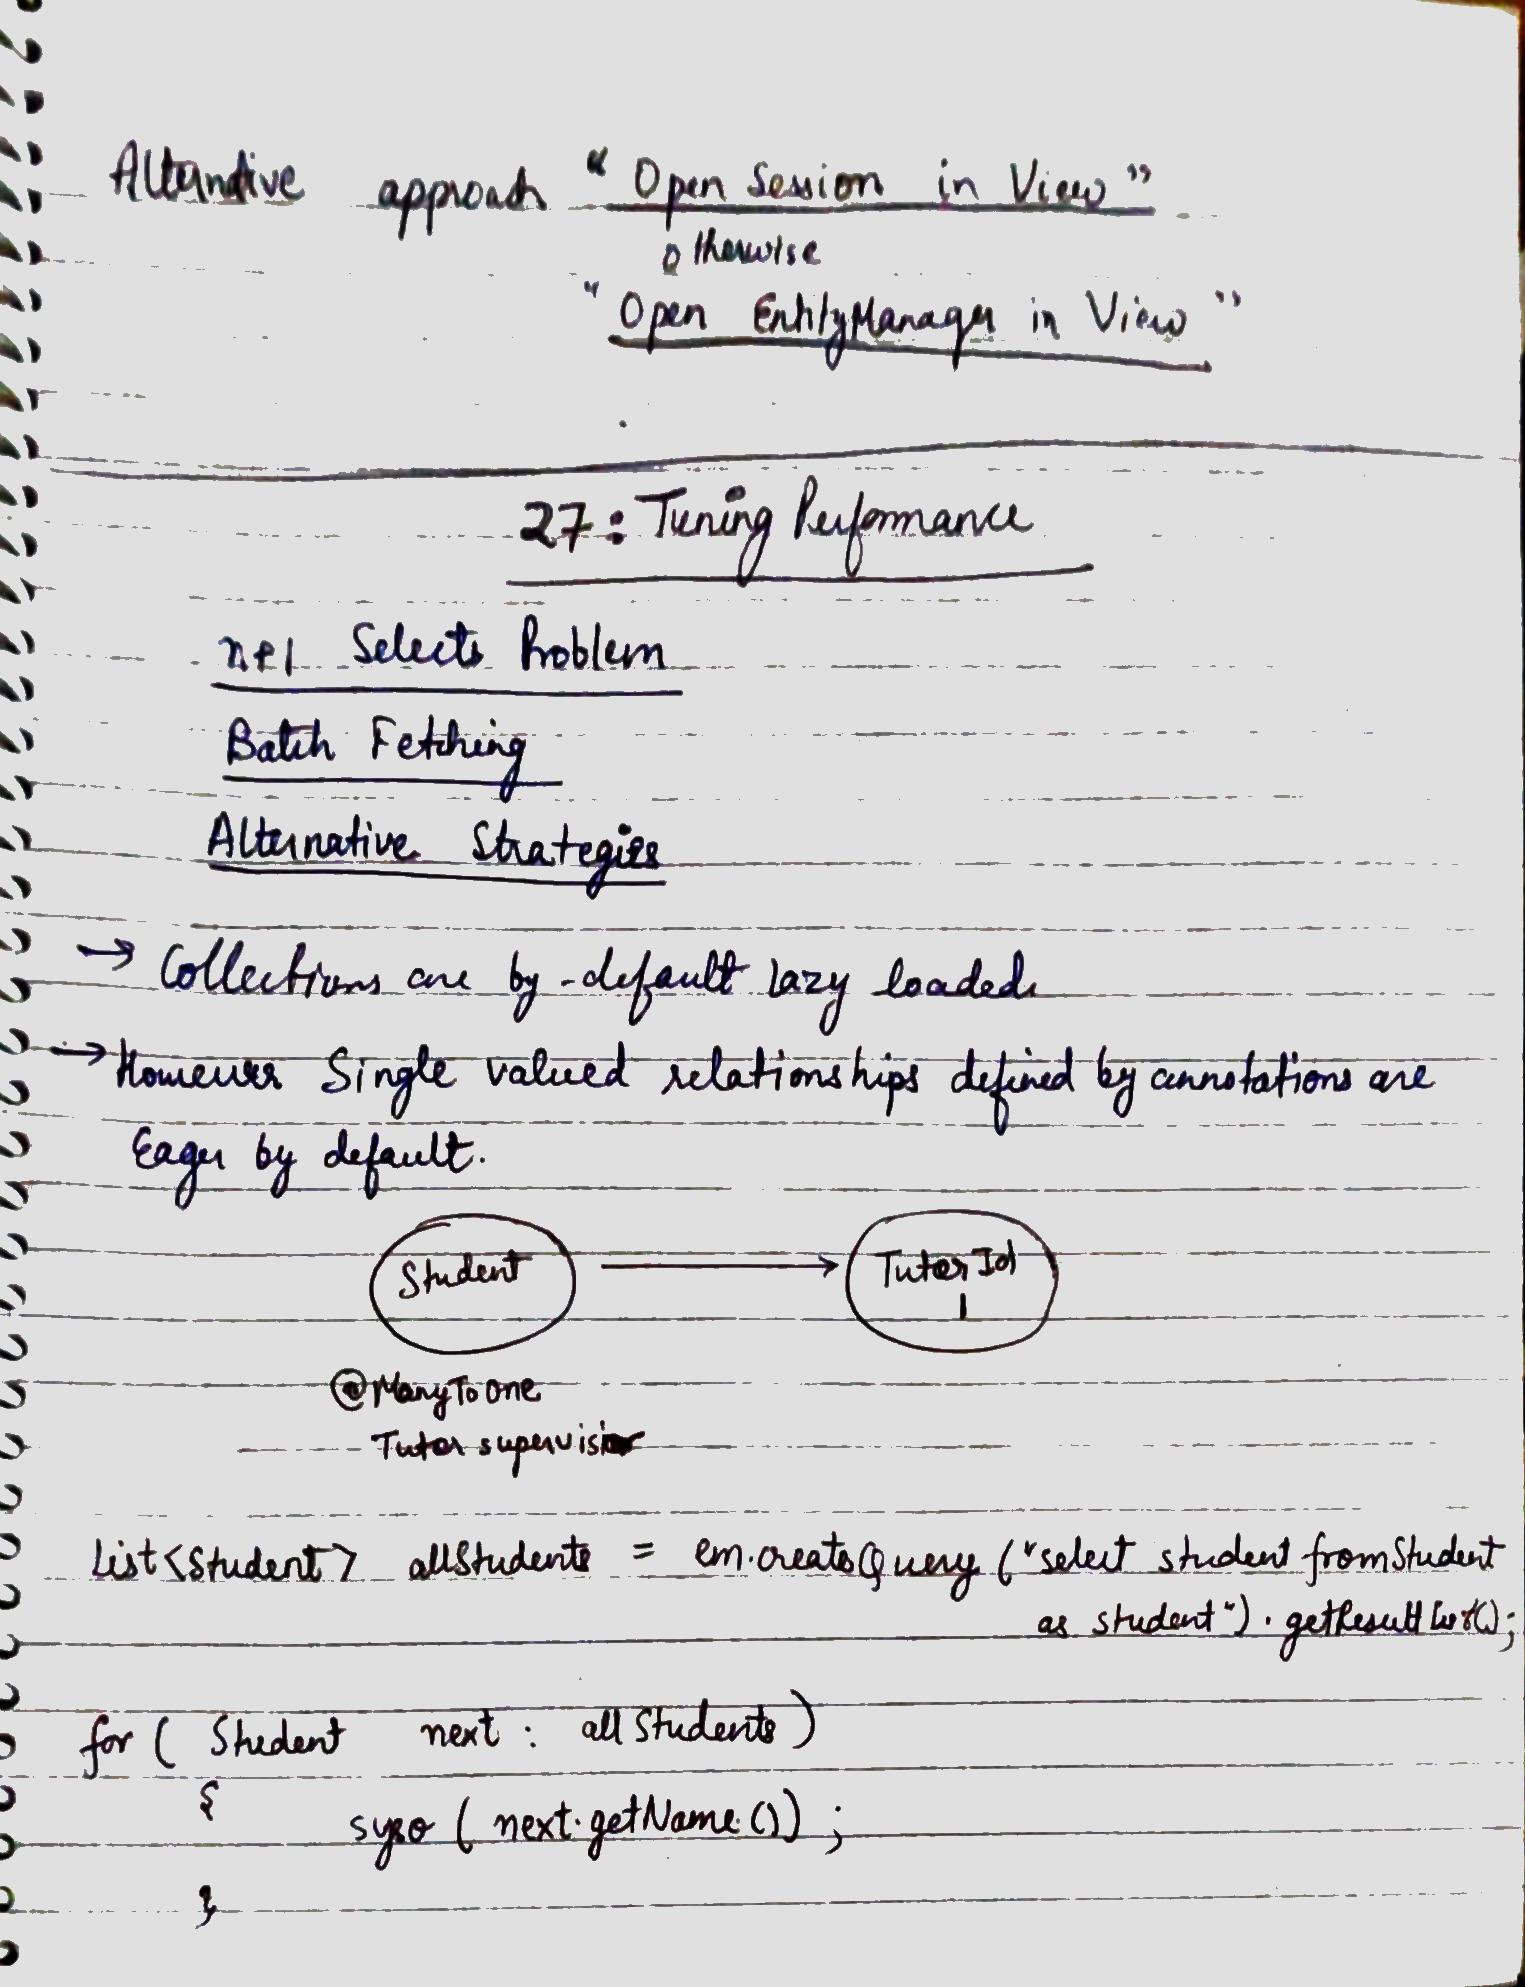 Alternative approach "Open Session in View"
otherwise
"Open EntityManager in View"
27: Tuning Performance
n+1 Selects Problem
Batch Fetching
Alternative Strategies
→ Collections are by-default lazy loaded.
→ However Single valued relationships defined by annotations are
Eager by default.
Student → Tutor Id
1
@ManyToOne
Tutor supervisor
List<Student> allStudents = em.createQuery("select student from Student
as student").getResultList();
for ( Student next : allStudents)
{
syso ( next.getName());
}